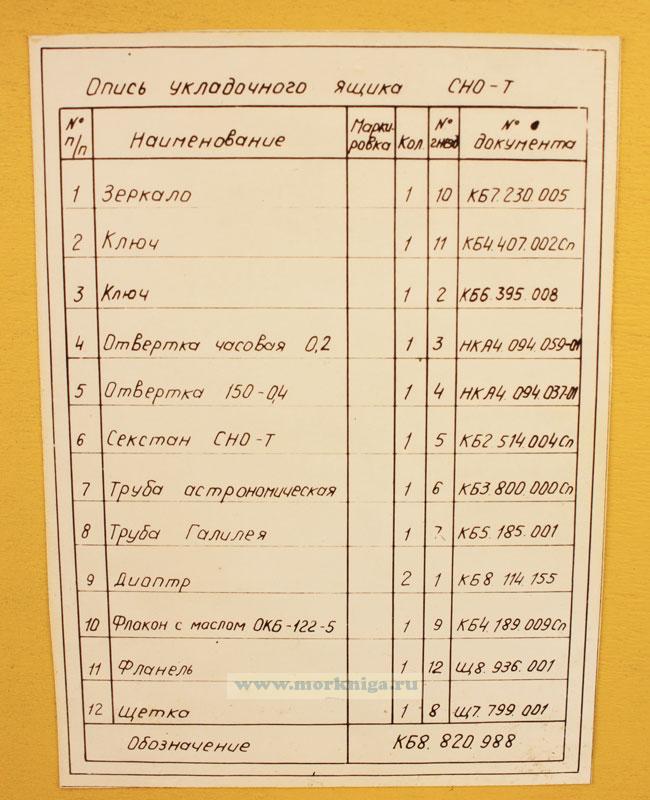 Опись укладочного ящика СНО-Т
№ п/п Наименование Марки-ровка Кол. № гнезд № документа
1 Зеркало 1 10 КБ7.230.005
2 Ключ 1 11 КБ4.407.002Сп
3 Ключ 1 2 КБ6.395.008
4 Отвертка часовая 0,2 1 3 НКА4.094.059-01
5 Отвертка 150-0,4 1 4 НКА4.094.037-01
6 Секстан СНО-Т 1 5 КБ2.514.004Сп
7 Труба астрономическая 1 6 КБ3.800.000Сп
8 Труба Галилея 1 7 КБ5.185.001
9 Диоптр 2 1 КБ8.114.155
10 Флакон с маслом ОКБ-122-5 1 9 КБ4.189.009Сп
11 Фланель 1 12 Щ8.936.001
www.morkniga.ru
12 Щетка 1 8 Щ7.799.001
Обозначение КБ8.820.988